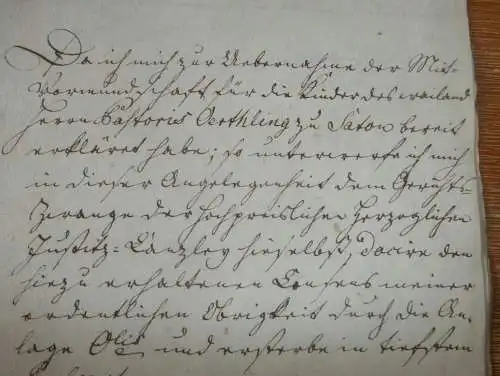 Da ich mich zur Uebernahme der Mit-
Vormundschaft für die Kinder des weiland
Herrn Pastoris Oerthling zu Satow bereit
erkläret habe; so unterwerfe ich mich
in dieser Angelegenheit dem Gerichts-
Zwange der Hochpreislichen Herzoglichen
Justitz-Canzley hieselbst, docire den
hiezu erhaltenen Consens meiner
ordentlichen Obrigkeit durch die An-
lage und ersterbe in tiefstem